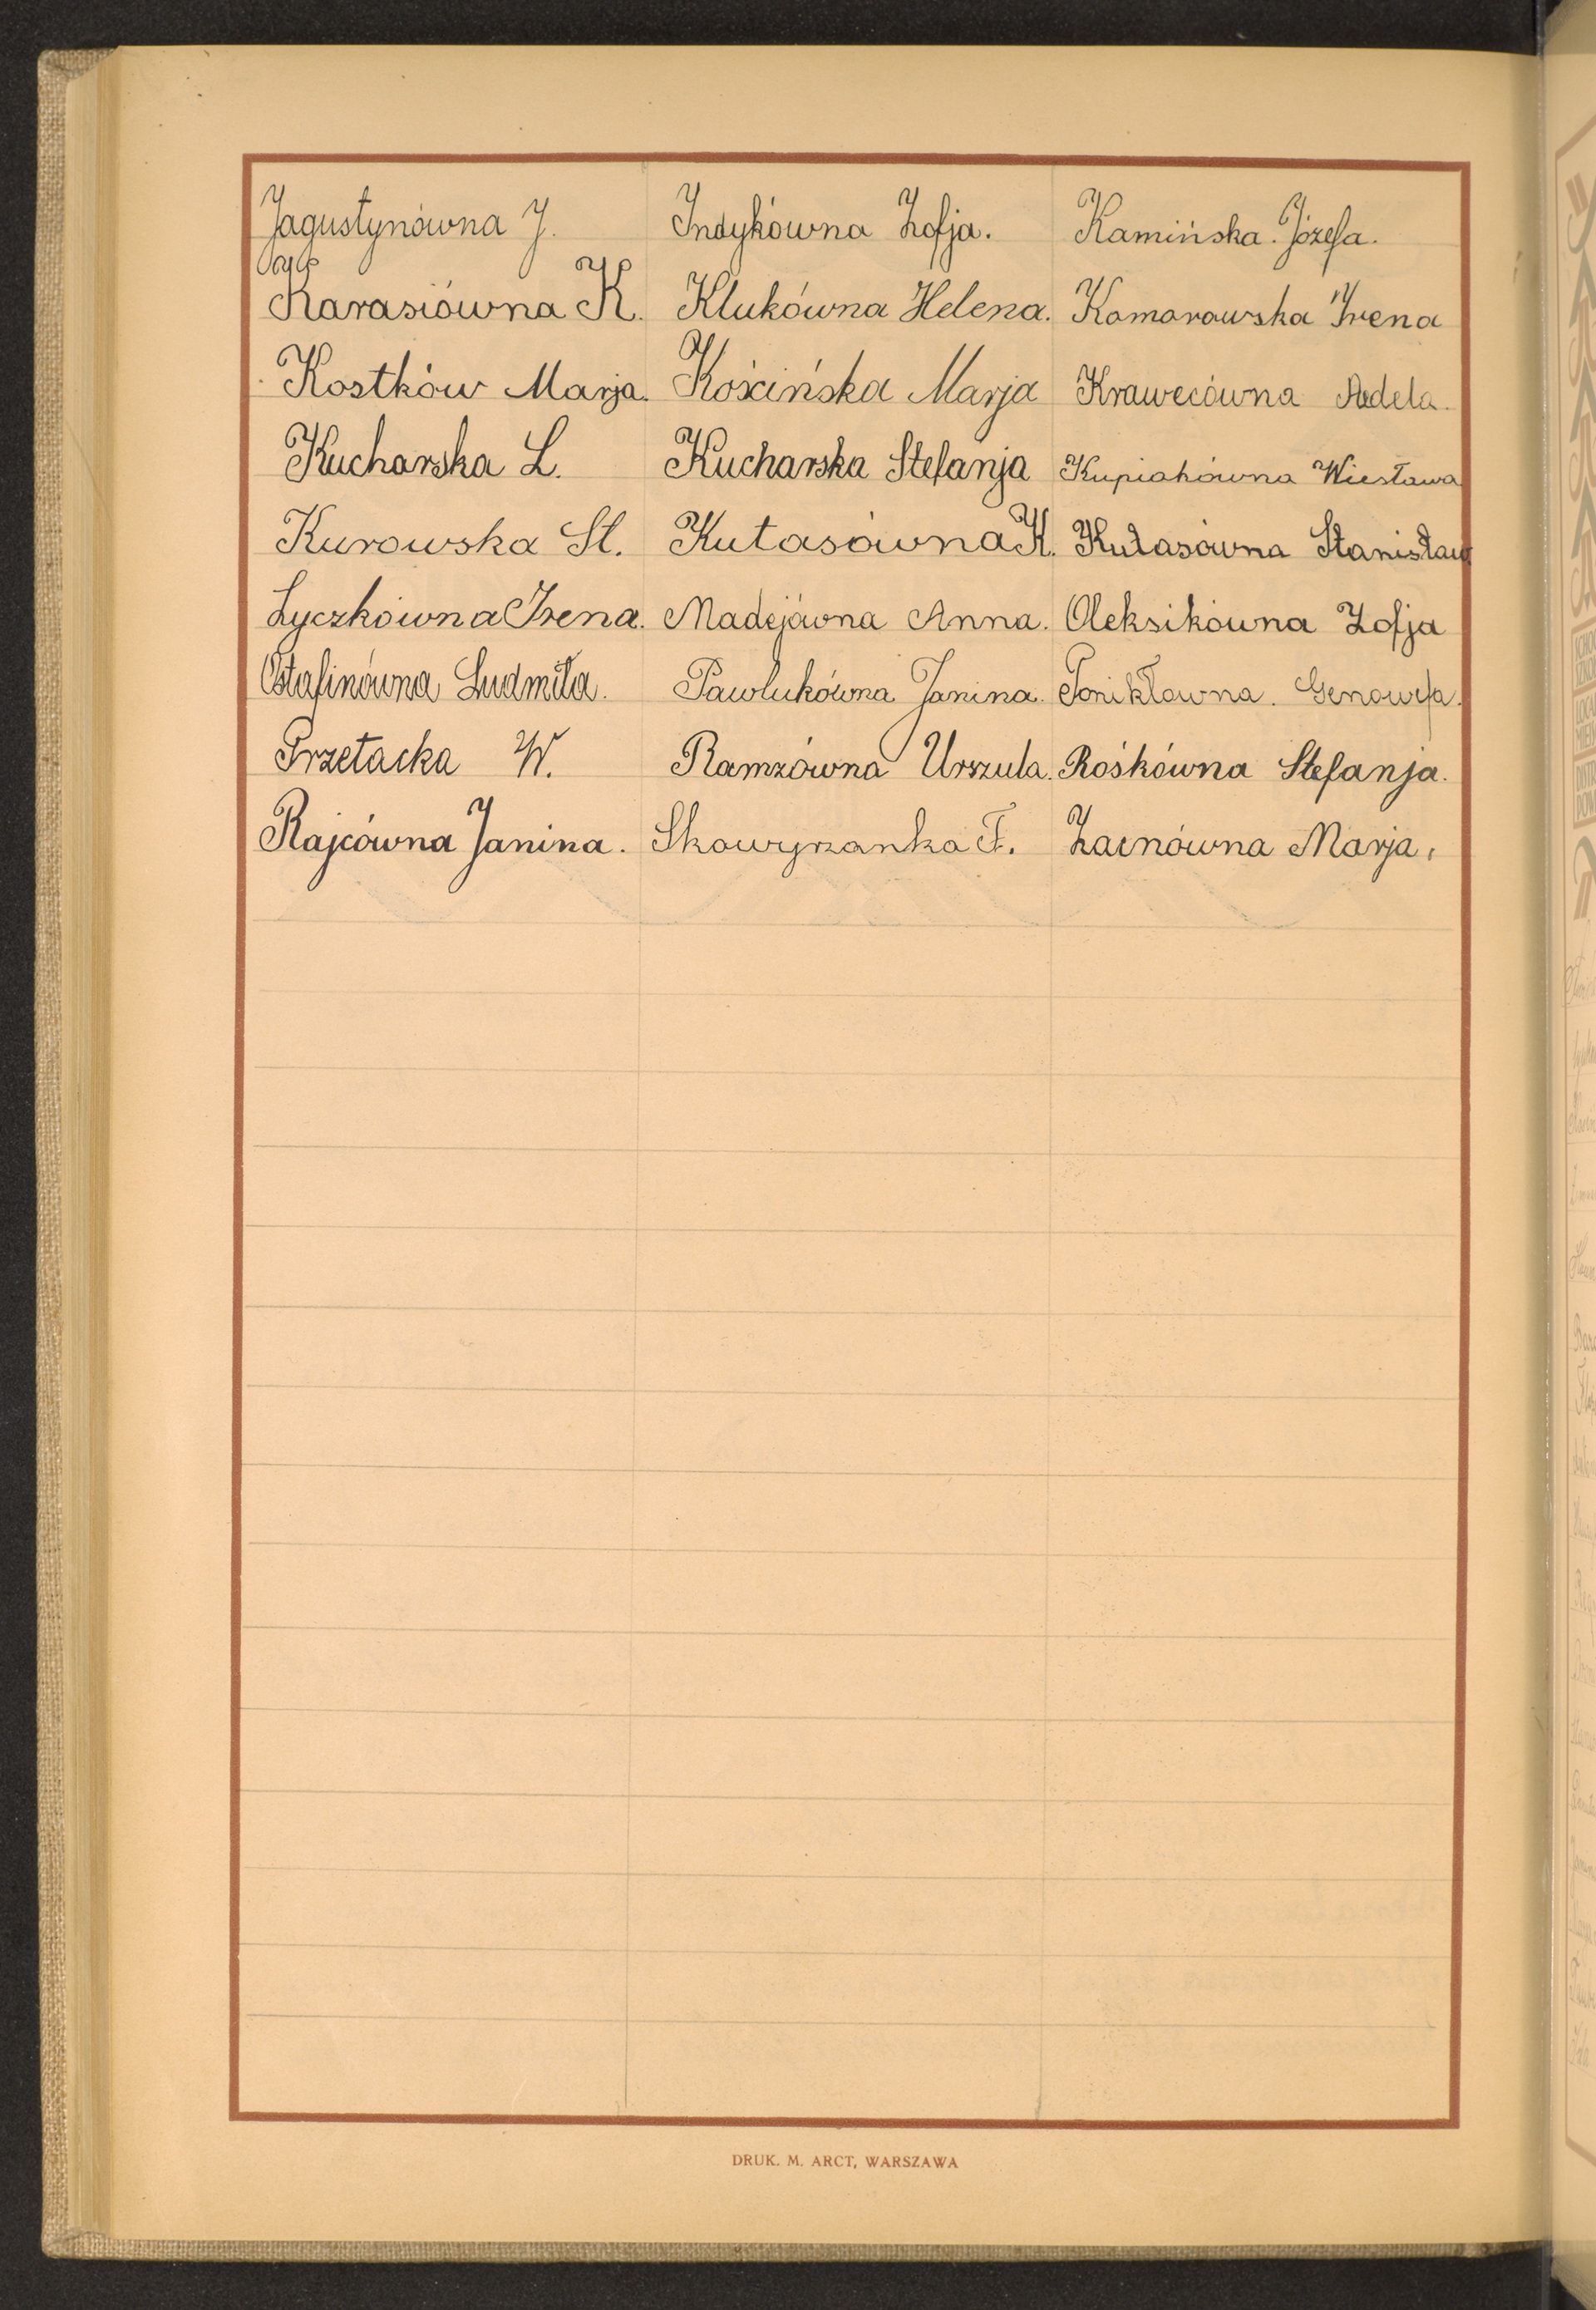 Jagustynówna J. Indykówna Zofja. Kamińska Józefa.
Karasiówna K. Klukówna Helena. Komorowska Irena
Kostków Marja. Kościńska Marja Krawcówna Adela.
Kucharska L. Kucharska Stefanja Kupiakówna Wiesława
Kurowska St. Kutasówna K. Kutasówna Stanisława
Łyczkówna Irena. Madejówna Anna. Oleksikówna Zofja
Ostafinówna Ludmiła. Pawlukówna Janina. Ponikłowna. Genowefa.
Przetacka W. Ramzówna Urszula. Rośkówna Stefanja.
Rajcówna Janina. Skowyrzanka F. Zacnówna Marja.
DRUK. M. ARCT, WARSZAWA